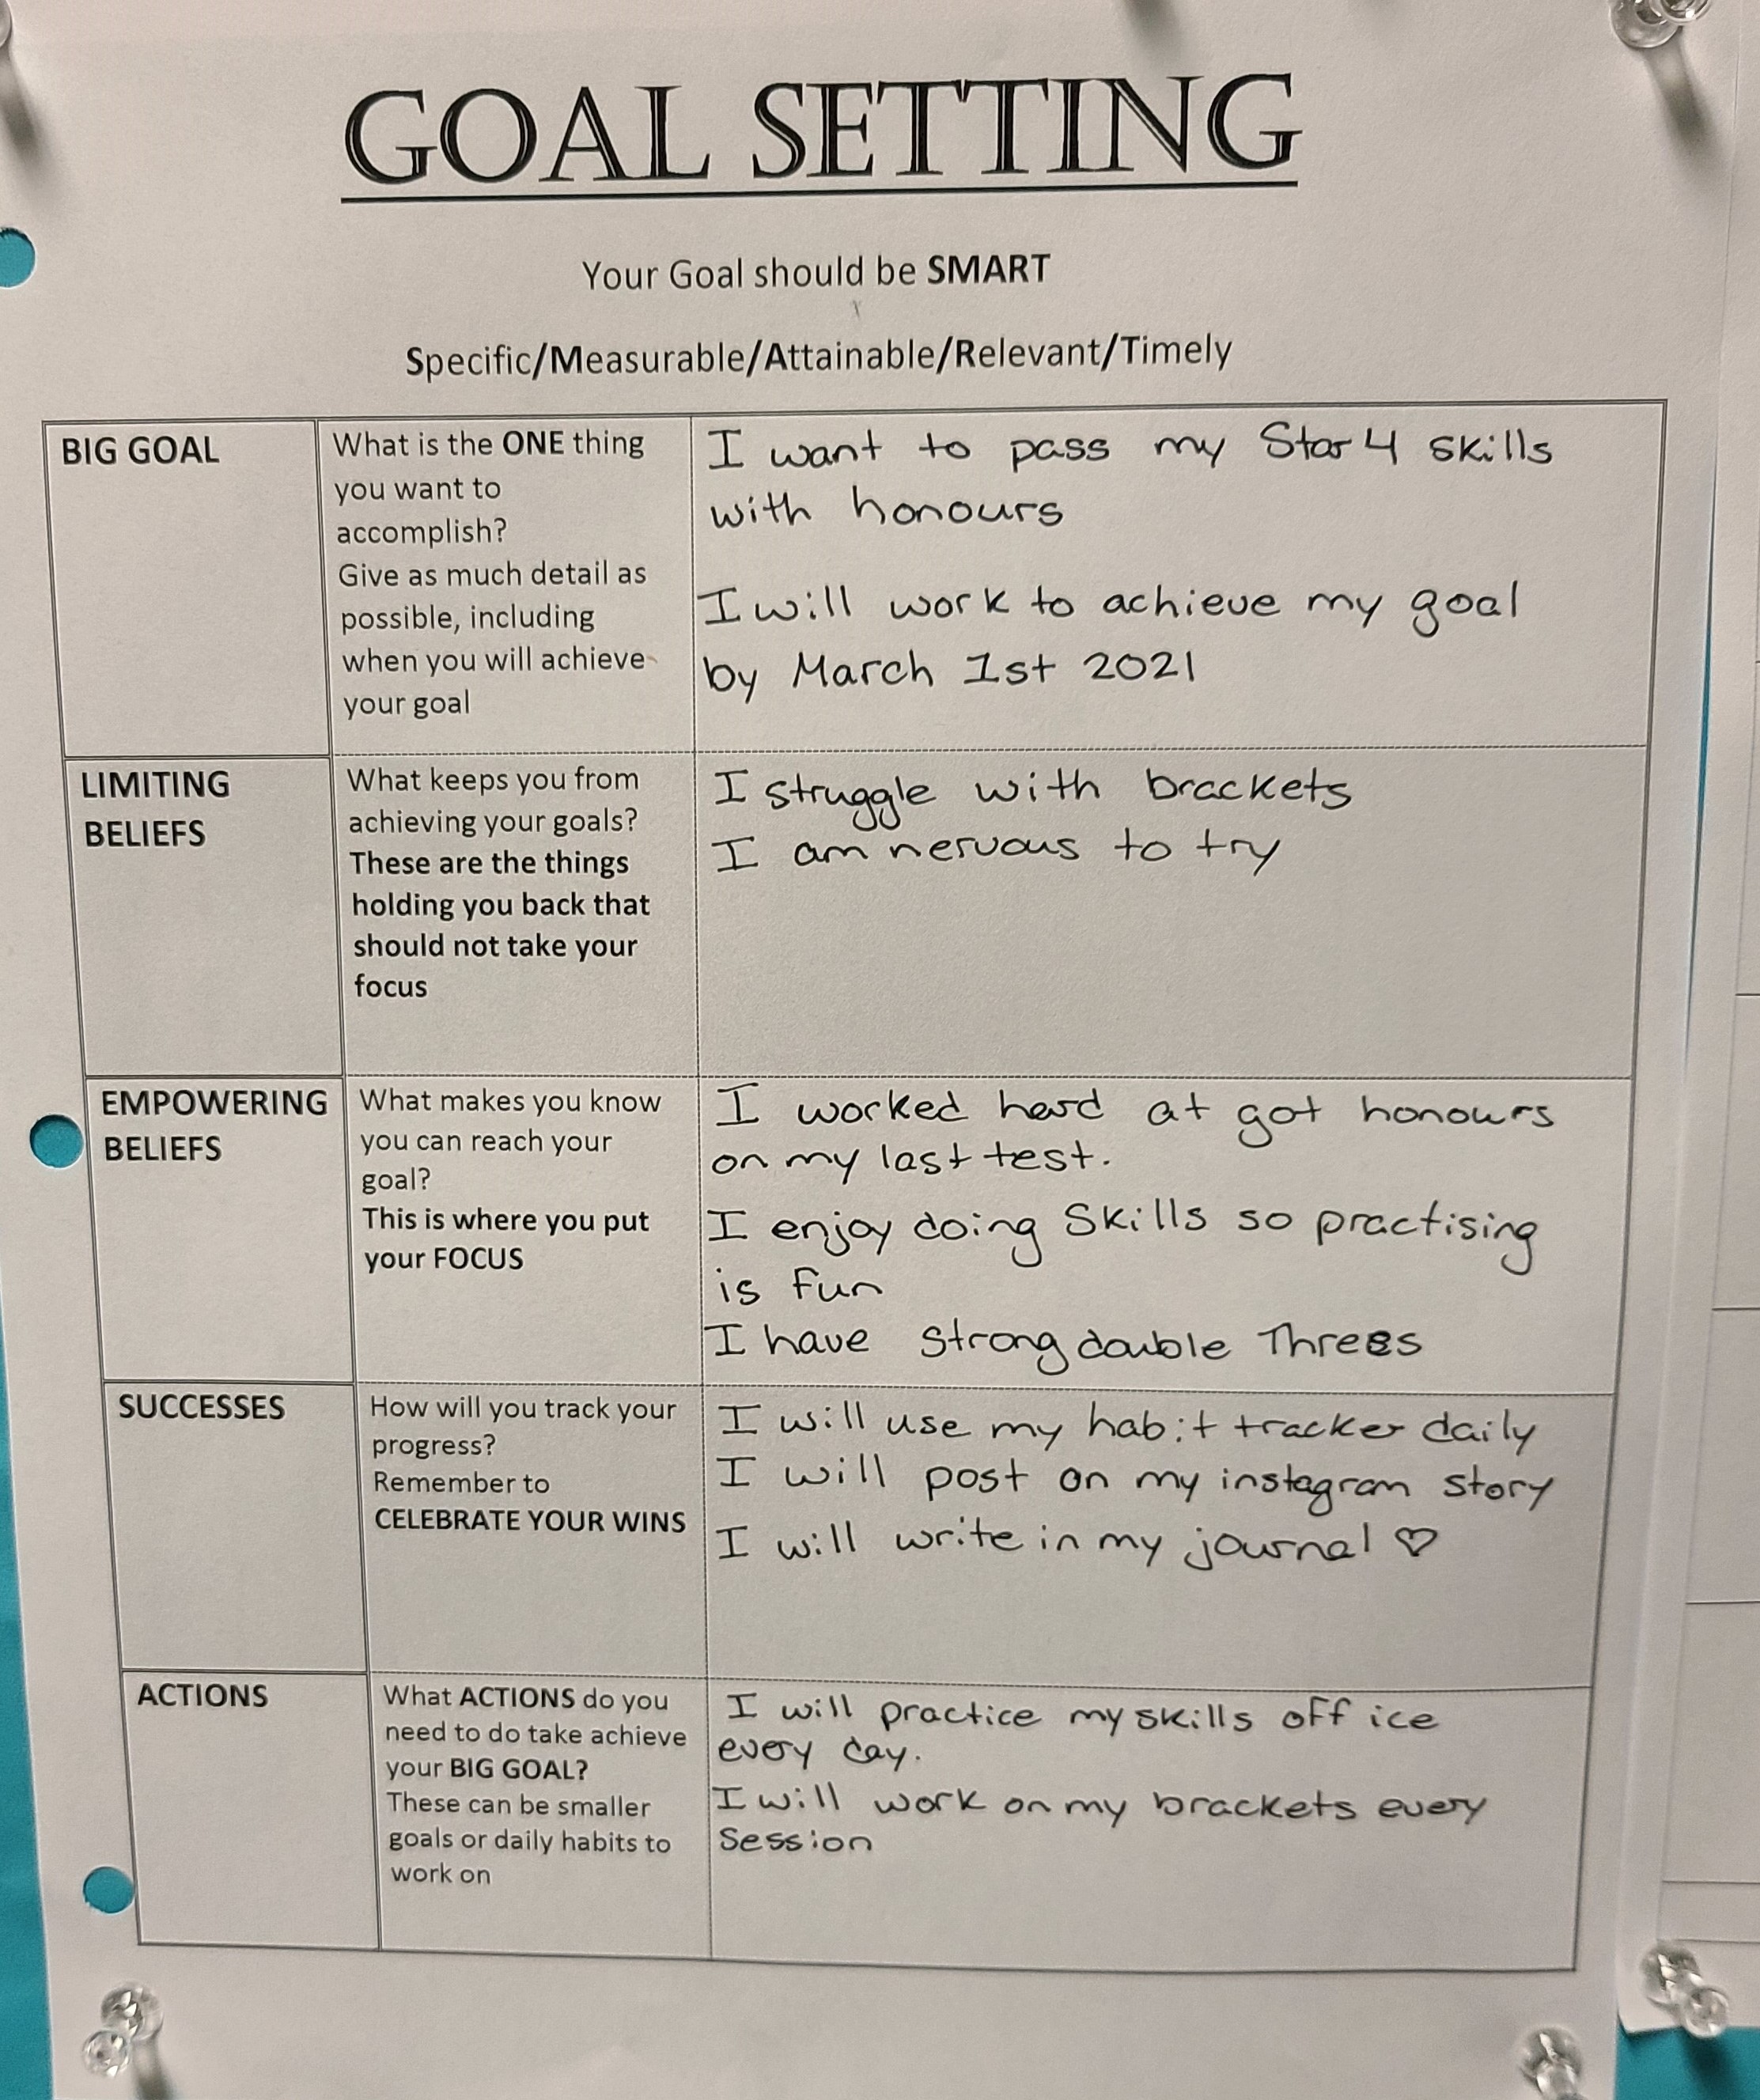 GOAL SETTING
Your Goal should be SMART
Specific/Measurable/Attainable/Relevant/Timely
BIG GOAL
What is the ONE thing
you want to
accomplish?
Give as much detail as
possible, including
when you will achieve
your goal
I want to pass my Star 4 skills
with honours
I will work to achieve my goal
by March 1st 2021
LIMITING
BELIEFS
What keeps you from
achieving your goals?
These are the things
holding you back that
should not take your
focus
I struggle with brackets
I am nervous to try
EMPOWERING
BELIEFS
What makes you know
you can reach your
goal?
This is where you put
your FOCUS
I worked hard at got honours
on my last test.
I enjoy doing Skills so practising
is fun
I have strong double Threes
SUCCESSES
How will you track your
progress?
Remember to
CELEBRATE YOUR WINS
I will use my habit tracker daily
I will post on my instagram story
I will write in my journal ♡
ACTIONS
What ACTIONS do you
need to do take achieve
your BIG GOAL?
These can be smaller
goals or daily habits to
work on
I will practice my skills off ice
every day.
I will work on my brackets every
Session